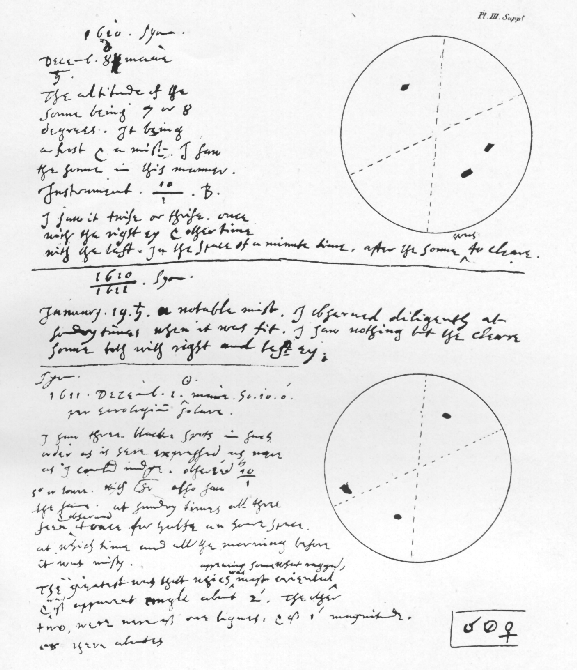 Pl. III. Suppt
1610. Syon.
Decemb. 8 mane
♄.
The altitude of the
sonne being 7 or 8
degrees. It being
a frost & a mist. I saw
the sonne in this manner.
Instrument. 10/1 . B.
I saw it twise or thrise. once
with the right ey & other time
with the left. In the space of a minute time, after the sonne was to cleare.
1610/1611 . Syon.
January. 19. ♄. a notable mist. I observed diligently at
sondry times when it was fit. I saw nothing but the cleare
sonne both with right and left ey.
Syon.
☉.
1611. Decemb. 1. mane
per horologium Solare.
I saw three blacke spots in such
order as is here expressed as nere
as I could judge. observed 10/1
also saw
the same. at sundry times all three
seen at once for halfe an houre space.
at which time and all the morning before
it was misty.
appearing somewhat ragged,
The greatest was that which was most oriental
& of apparent angle about 2′. The other
two, were nere of one bignes, & of 1′ magnitude.
or there abouts
♂☉♀